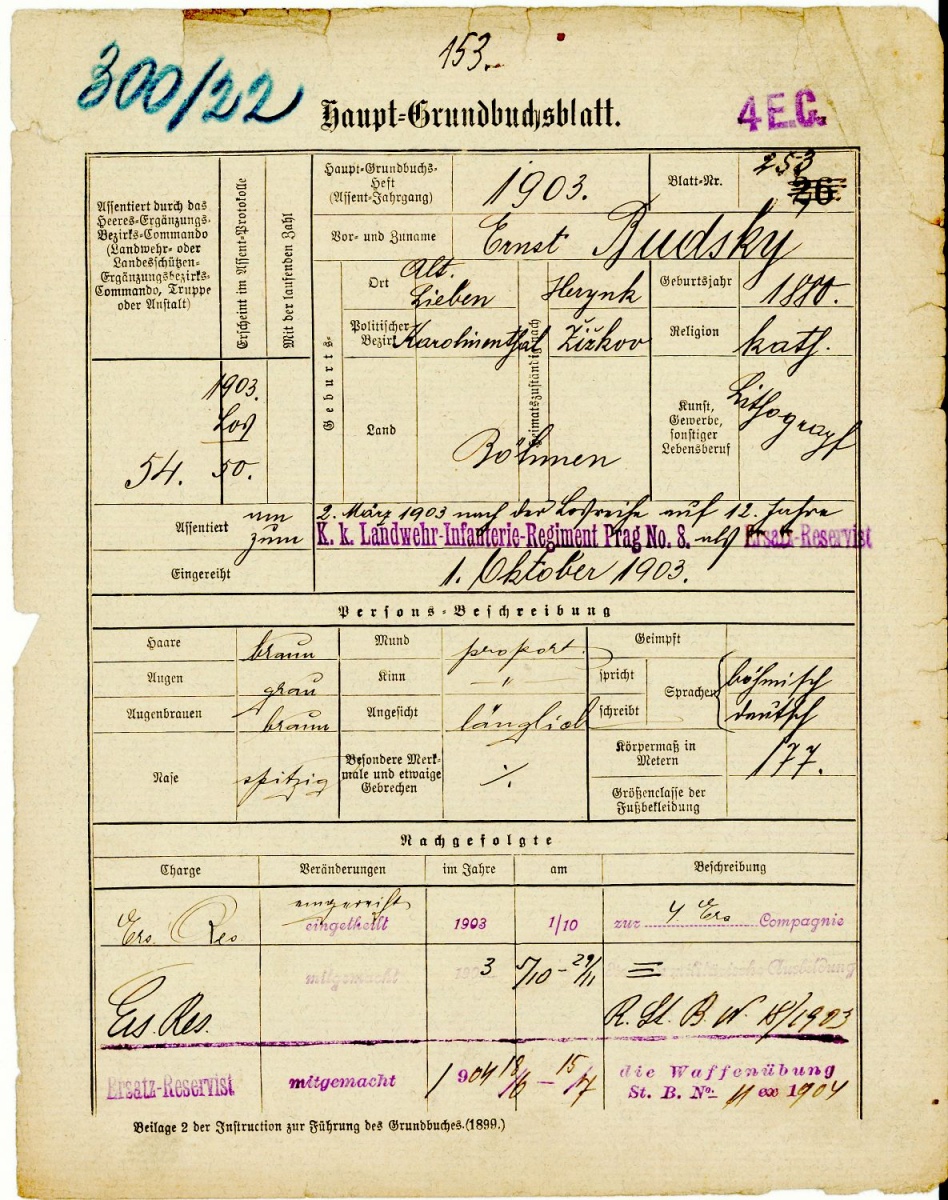 153.
300/22
Haupt-Grundbuchsblatt.
4 E.C.
Assentiert durch das
Heeres-Ergänzungs-
Bezirks-Commando
(Landwehr- oder
Landesschützen-
Ergänzungsbezirks-
Commando, Truppe
oder Anstalt)
Erscheint im Assent-Protokolle
Mit der laufenden Zahl
Haupt-Grundbuchs-
Heft
(Assent-Jahrgang)
1903.
Blatt-Nr.
253
26
Vor- und Zuname
Ernst Budský
Geburts-
Ort
Alt.
Lieben
Heimatszuständig nach
Herynk
Geburtsjahr
1880.
Politischer
Bezirk
Karolinenthal
Žižkov
Religion
kath.
Land
Böhmen
Kunst,
Gewerbe,
sonstiger
Lebensberuf
Lithograf
1903.
Los
54. 50.
Assentiert
am
zum
2. März 1903 nach der Losreihe auf 12. Jahre
K. k. Landwehr-Infanterie-Regiment Prag No. 8. als Ersatz-Reservist
Eingereiht
1. Oktober 1903.
Persons-Beschreibung
Haare braun
Mund proport.
Geimpft
Augen grau
Kinn "
spricht
Sprachen
böhmisch
Augenbrauen braun
Angesicht länglich
schreibt
deutsch
Nase spitzig
Besondere Merk-
male und etwaige
Gebrechen
·/.
Körpermaß in
Metern
177.
Größenclasse der
Fußbekleidung
Nachgefolgte
Charge Veränderungen im Jahre am Beschreibung
eingereiht
Ers. Res eingetheilt 1903 1/10 zur 4 Ers Compagnie
mitgemacht 1903 5/10 - 29/11 militärische Ausbildung
Ers. Res. R. St. B. N. 18/1903
Ersatz-Reservist mitgemacht 1904 18/6 - 15/7 die Waffenübung
St. B. No. 11 ex 1904
Beilage 2 der Instruction zur Führung des Grundbuches.(1899.)